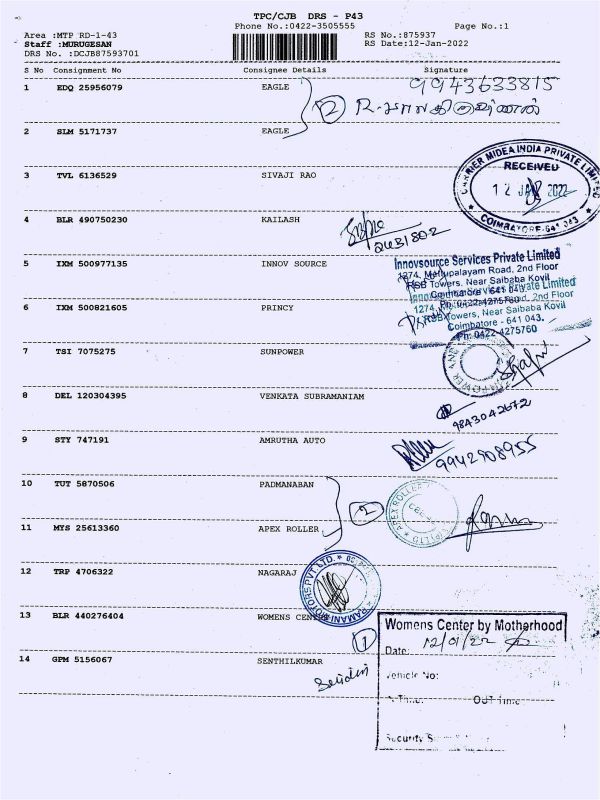 TPC/CJB DRS - P43
Phone No.:0422-3505555
Page No.:1
Area :MTP RD-1-43
RS No.:875937
Staff :MURUGESAN
RS Date:12-Jan-2022
DRS No. :DCJB87593701
S No Consignment No Consignee Details Signature
1 EDQ 25956079 EAGLE 9943633815
2
2 SLM 5171737 EAGLE
CARRIER MIDEA INDIA PRIVATE LIMITED
RECEIVED
12 JAN 2022
COIMBATORE-641 043
3 TVL 6136529 SIVAJI RAO
4 BLR 490750230 KAILASH
5 IXM 500977135 INNOV SOURCE
Innovsource Services Private Limited
1274, Mettupalayam Road, 2nd Floor
RSB Towers, Near Saibaba Kovil
Coimbatore - 641 043.
Ph: 0422-4275760
6 IXM 500821605 PRINCY
Innovsource Services Private Limited
1274, Mettupalayam Road, 2nd Floor
RSB Towers, Near Saibaba Kovil
Coimbatore - 641 043.
Ph: 0422-4275760
7 TSI 7075275 SUNPOWER
8 DEL 120304395 VENKATA SUBRAMANIAM
9843042672
9 STY 747191 AMRUTHA AUTO
9942908955
10 TUT 5870506 PADMANABAN
2
APEX ROLLER
11 MYS 25613360 APEX ROLLER
12 TRP 4706322 NAGARAJ
13 BLR 440276404 WOMENS CENTER
1
Womens Center by Motherhood
Date: 12/01/22
Vehicle No:
14 GPM 5156067 SENTHILKUMAR
In Time: OUT Time: